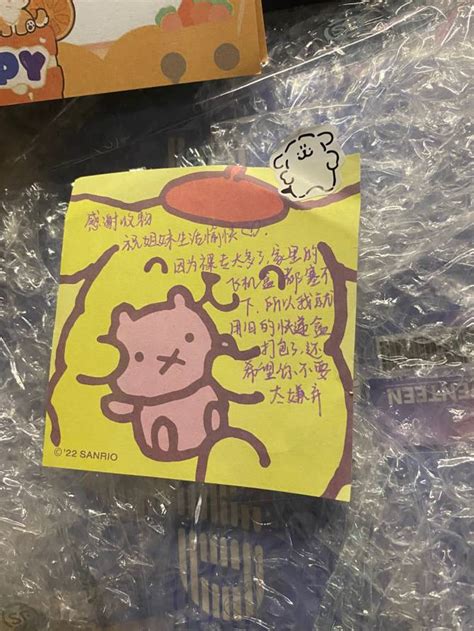 PPY
感谢收物
祝姐妹生活愉快
因为裸专太多了,家里的
飞机盒都塞不
下,所以我就
用旧的快递盒
打包了,还
希望你不要
太嫌弃
©'22 SANRIO